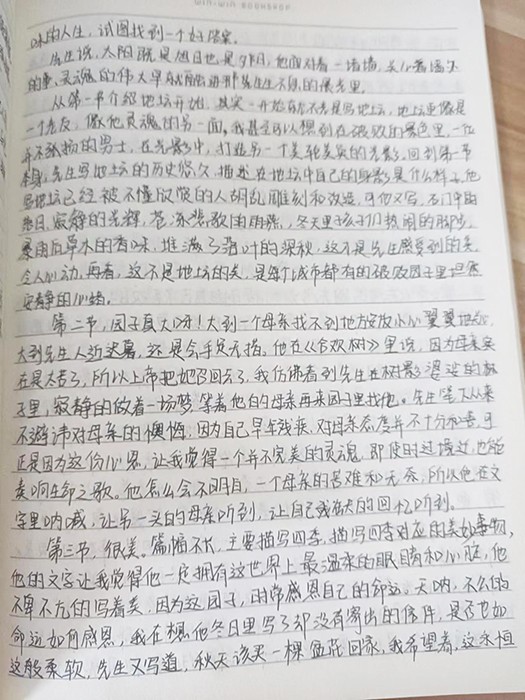 WIN-WIN BOOKSHOP
味的人生，试图找到一个好答案。
先生说，太阳既是旭日也是夕阳，他面对着一堵墙，关心着过去
的事，灵魂的伟大早就融进那先生生生不息的晨光里。
从第一节介绍地坛开始，其实一开始先生不是写地坛，地坛更像是
一个老友，像他灵魂的另一面。我甚至可以想到在破败的景色里，一位
并不孤独的男士，在光影中，打造另一个美轮美奂的光影。回到第一节
本身，先生写地坛的历史悠久，描述在地坛中自己的身影是什么样子，他
写地坛已经被不懂欣赏的人胡乱雕刻和改造，可他又写，石门中的
落日，寂静的光辉，苍凉悲歌的雨燕，冬天里孩子们热闹的脚步，
暴雨后草木的香味，堆满了落叶的深秋，这不是先生感受到的美，
令人心动，再看，这不是地坛的美，是每个城市都有的破败园子里坦然
安静的心绪。
第二节，园子真大呀！大到一个母亲找不到地方安放小心翼翼地心，
大到先生人近迟暮，还是会手足无措。他在《合欢树》里说，因为母亲实
在是太苦了，所以上帝把她召回去了，我仿佛看到先生在树影婆娑的林
子里，寂静的做着一场梦，等着他的母亲再来园子里找他。先生笔下从来
不避讳对母亲的懊悔，因为自己早年残疾，对母亲态度并不十分和善，可
正是因为这份心思，让我觉得一个并不完美的灵魂，即使时过境迁，也能
奏响生命之歌。他怎么会不明白，一个母亲的苦难和无奈，所以他在文
字里呐喊，让另一头的母亲听到，让自己残破的回忆听到。
第三节，很美。篇幅不长，主要描写四季，描写四季对应的美好事物，
他的文字让我觉得他一定拥有这世界上最温柔的眼睛和心脏，他
不卑不亢的写着美，因为这园子，时常感恩自己的命运。天呐，不公的
命运如何感恩，我在想他冬日里写了却没有寄出的信件，是否也如
这般柔软，先生又写道，秋天该买一棵盆花回家，我希望着，这永恒